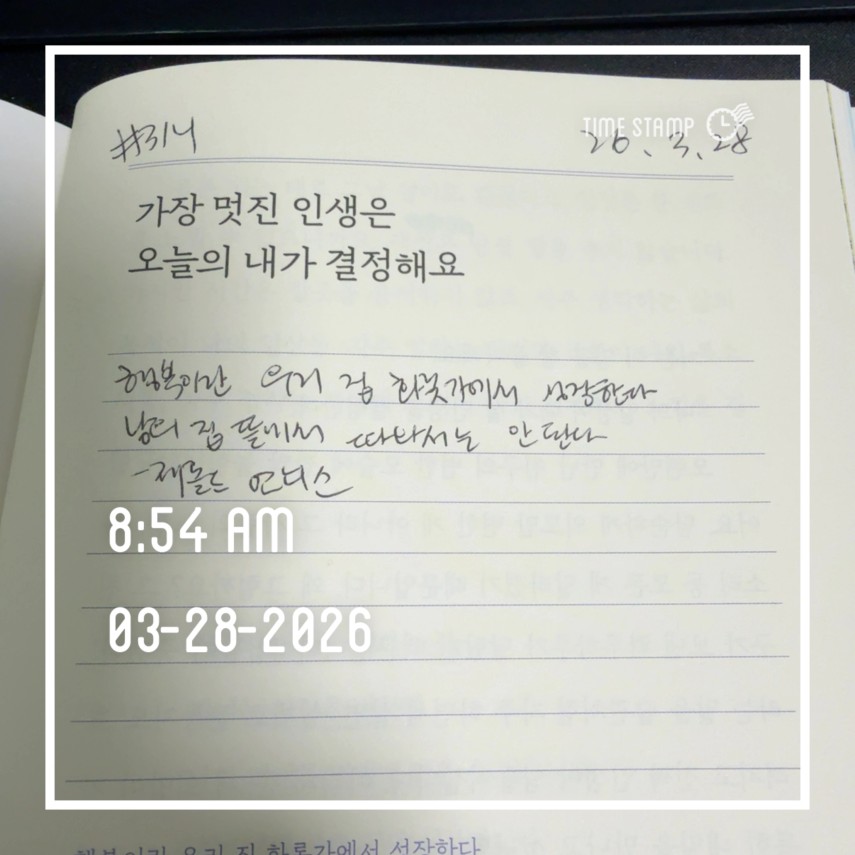 #314
TIME STAMP
26. 3. 28
가장 멋진 인생은
오늘의 내가 결정해요
행복이란 우리 집 화롯가에서 성장한다
남의 집 뜰에서 따와서는 안 된다
-제롤드 언더스
8:54 AM
03-28-2026
행복이란 우리 집 화롯가에서 성장한다